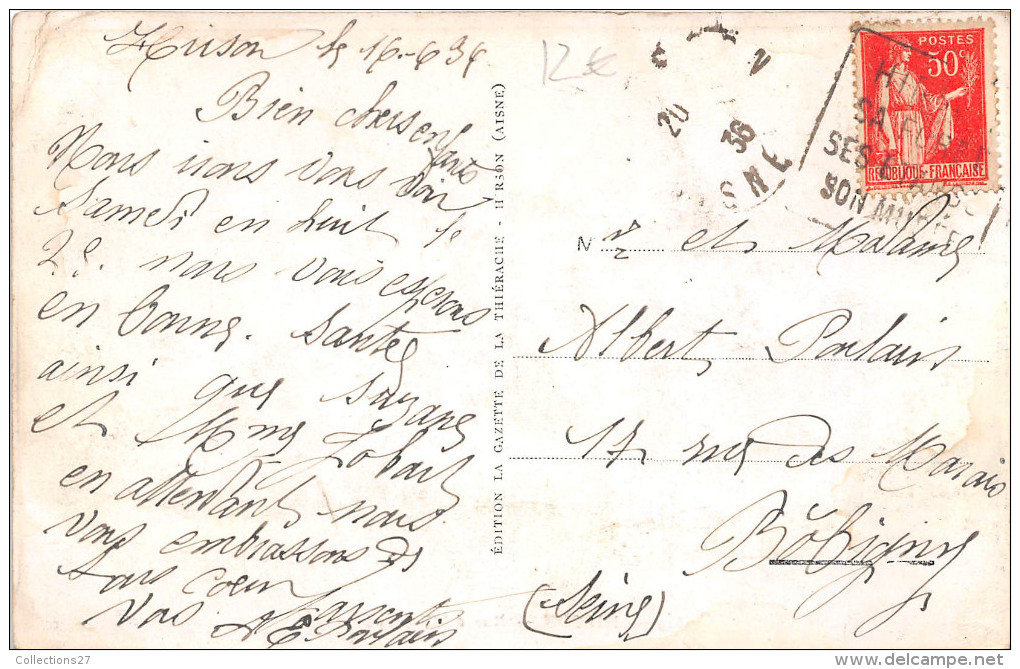 Hirson le 16-6 36
Bien chers enfants
Nous irons vous voir
Samedi en huit le
28. nous vous espérons
en bonne santée
ainsi que Suzane
et Mme Jobart
en attendant nous
vous embrassons de
tous coeur
vos Parents
Poulain
12 €
ÉDITION LA GAZETTE DE LA THIÉRACHE - HIRSON (AISNE)
20
36
AISNE
POSTES
50c
REPUBLIQUE FRANÇAISE
SA FORÊT
SES ÉTANGS
SON MUSÉE
Mr et Madame
Albert Poulain
17 rue des Marais
Bobigny
(Seine)
Collections27
delcampe.net